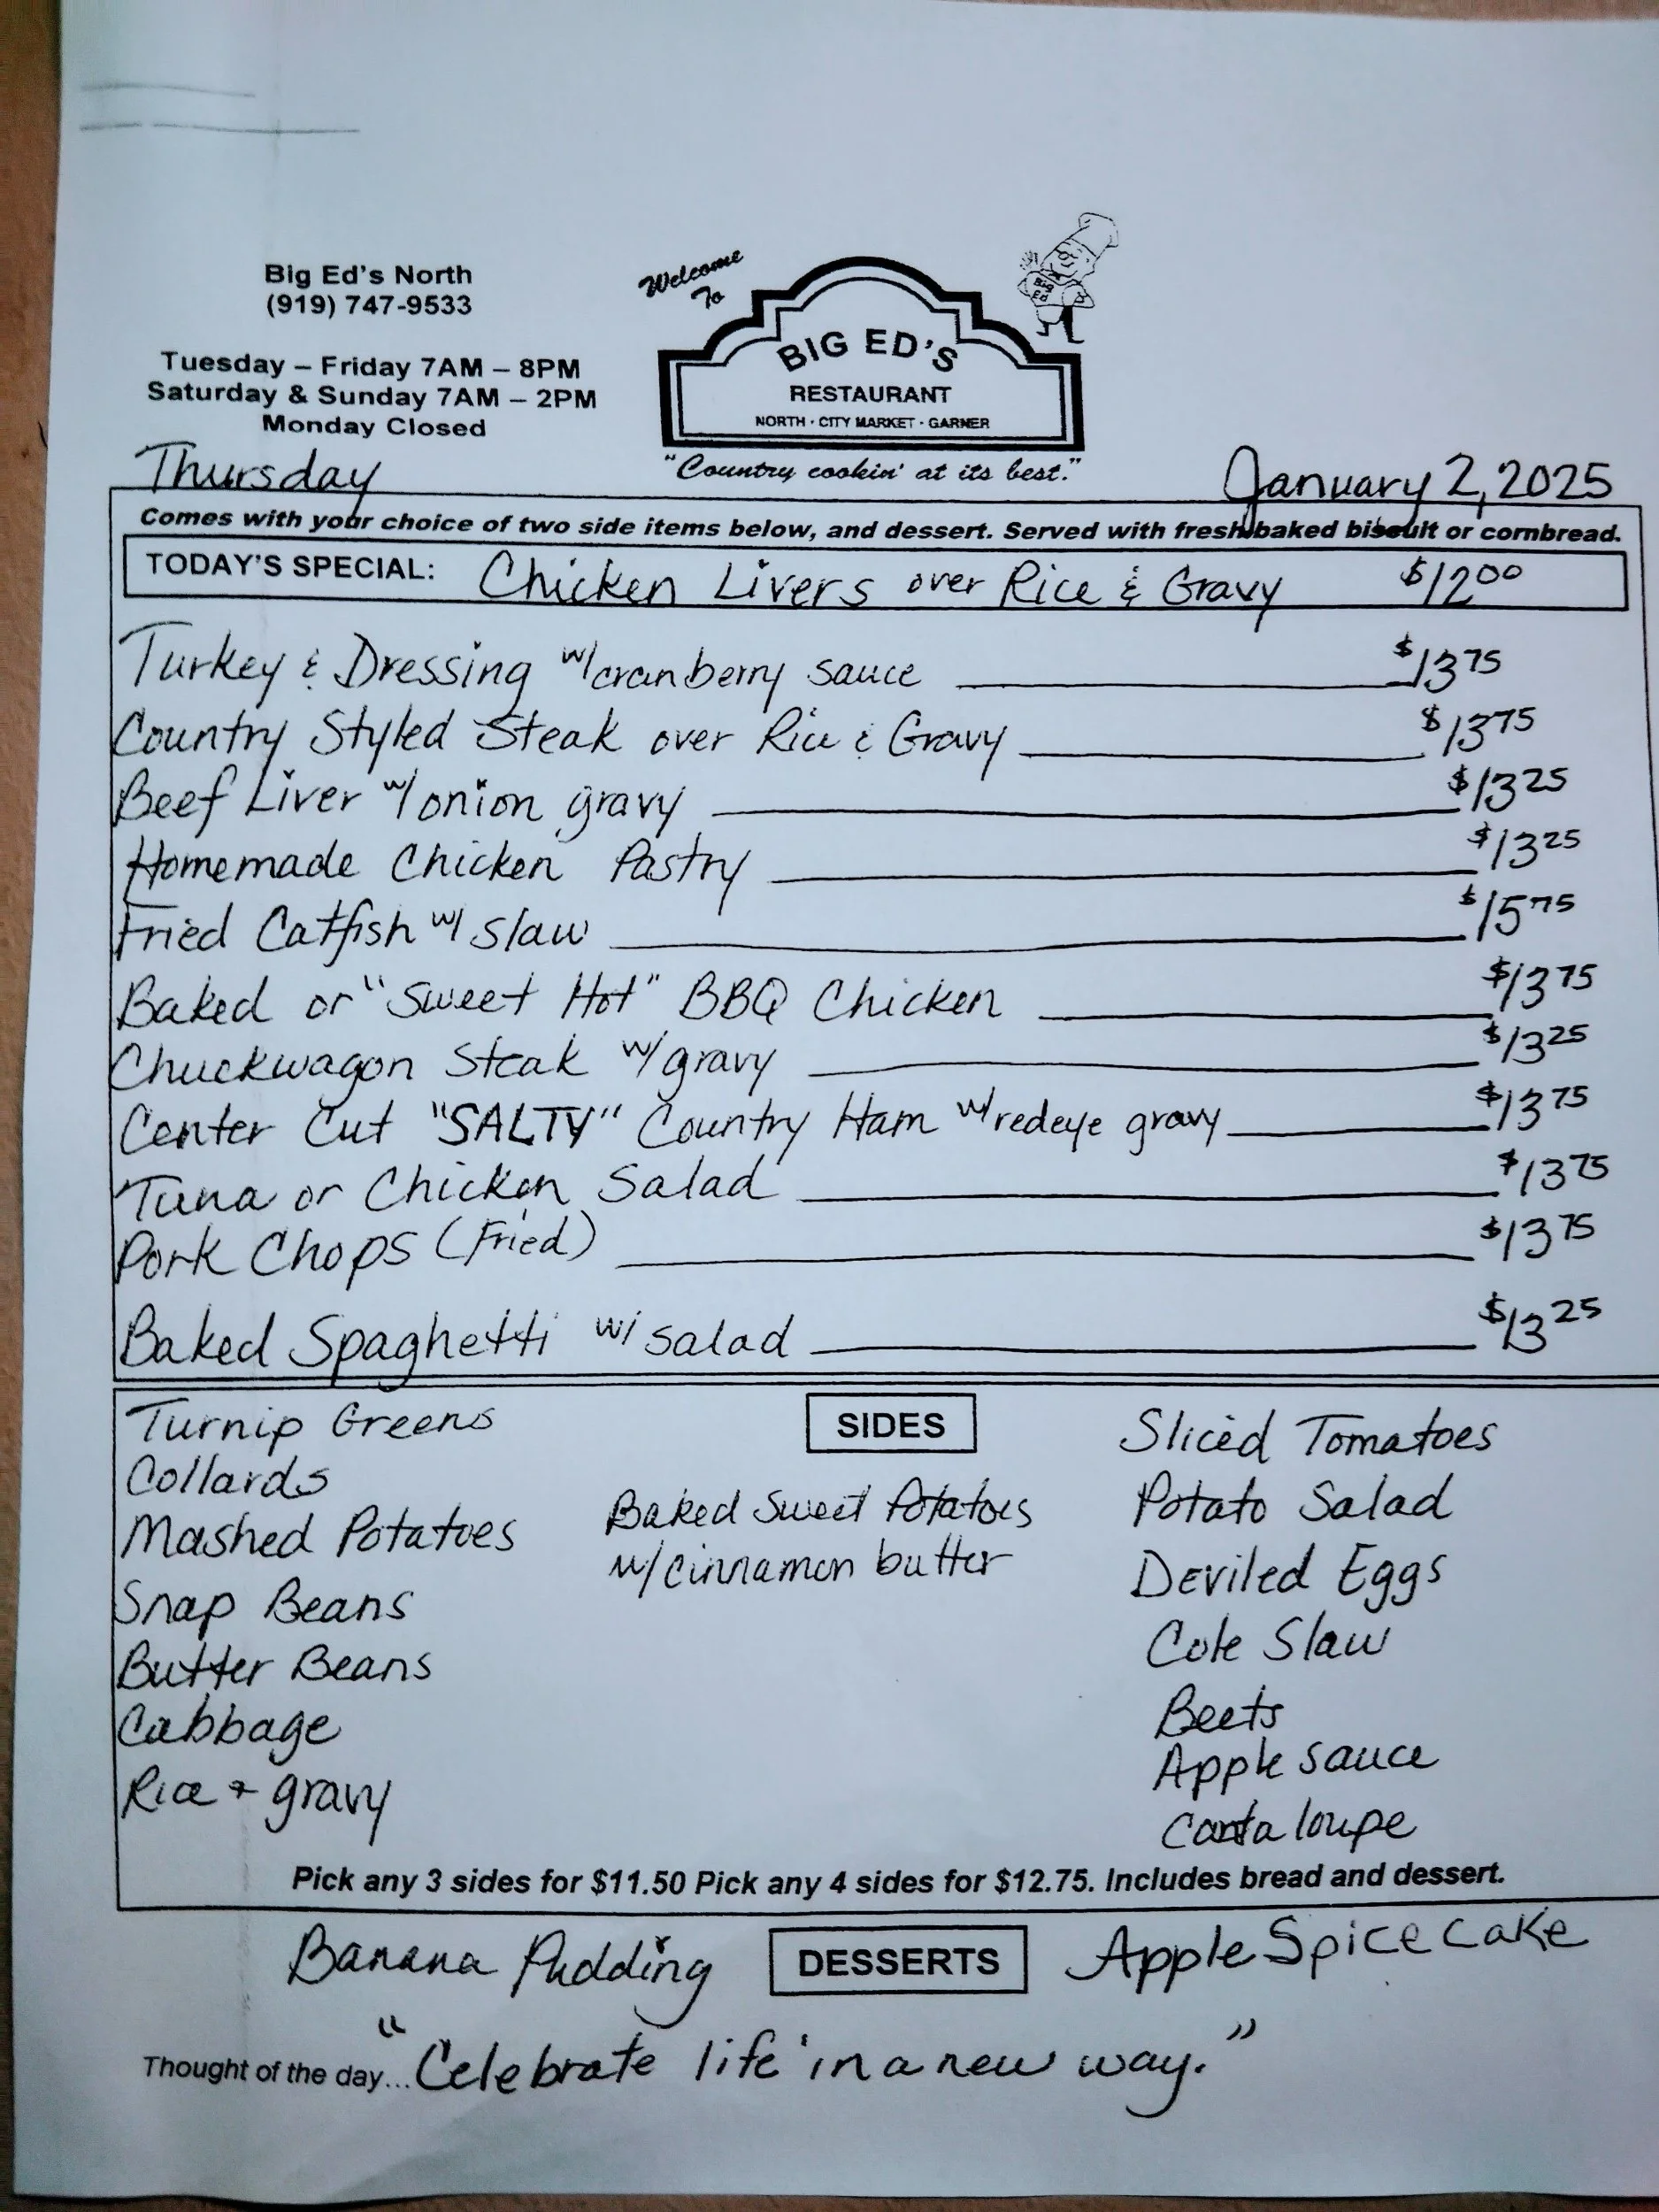 Big Ed's North
(919) 747-9533
Tuesday – Friday 7AM – 8PM
Saturday & Sunday 7AM – 2PM
Monday Closed
Welcome
To
BIG ED'S
RESTAURANT
NORTH · CITY MARKET · GARNER
"Country cookin' at its best."
Big
Ed
Thursday
January 2, 2025
Comes with your choice of two side items below, and dessert. Served with fresh baked biscuit or cornbread.
TODAY'S SPECIAL: Chicken Livers over Rice & Gravy $12.00
Turkey & Dressing w/cranberry sauce $13.75
Country Styled Steak over Rice & Gravy $13.75
Beef Liver w/onion gravy $13.25
Homemade Chicken Pastry $13.25
Fried Catfish w/ slaw $15.75
Baked or "Sweet Hot" BBQ Chicken $13.75
Chuckwagon Steak w/gravy $13.25
Center Cut "SALTY" Country Ham w/redeye gravy $13.75
Tuna or Chicken Salad $13.75
Pork Chops (Fried) $13.75
Baked Spaghetti w/ salad $13.25
SIDES
Turnip Greens
Collards
Mashed Potatoes
Snap Beans
Butter Beans
Cabbage
Rice + gravy
Baked Sweet Potatoes
w/cinnamon butter
Sliced Tomatoes
Potato Salad
Deviled Eggs
Cole Slaw
Beets
Apple sauce
Cantaloupe
Pick any 3 sides for $11.50 Pick any 4 sides for $12.75. Includes bread and dessert.
Banana Pudding DESSERTS Apple Spice Cake
Thought of the day... "Celebrate life in a new way."